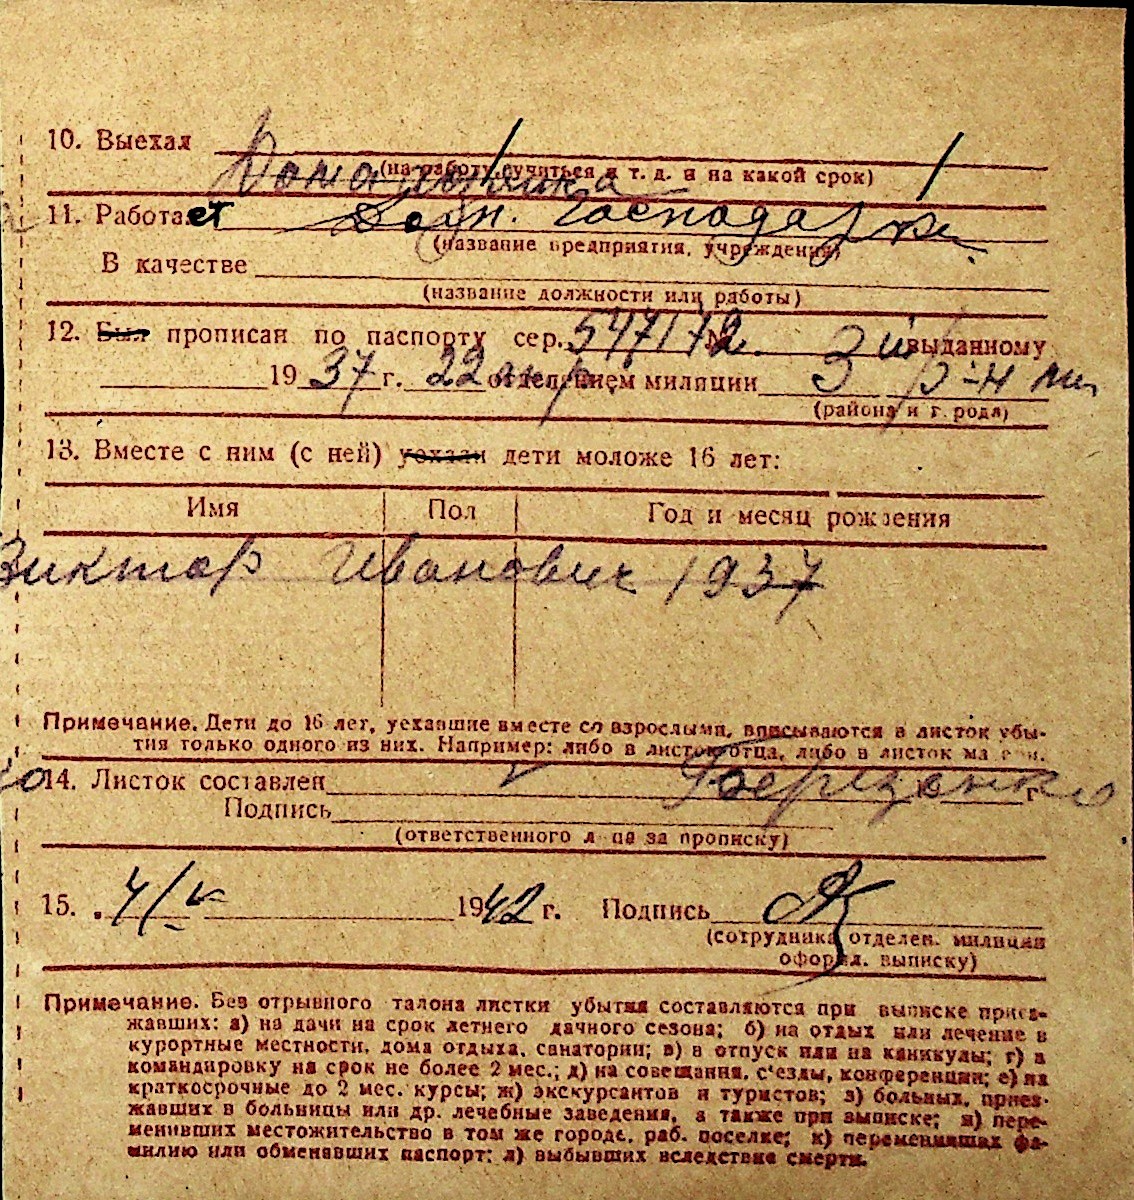 10. Выехал
(на работу, учиться и т. д. и на какой срок)
Домашняя
11. Работает Дом. Господарка
(название предприятия, учреждения)
В качестве
(название должности или работы)
12. Был прописан по паспорту сер. 547172 № 3 выданному
1937 г. 22 апр. отделением милиции 3 р-н мил
(района и г. рода)
13. Вместе с ним (с ней) уехали дети моложе 16 лет:
Имя Пол Год и месяц рождения
Виктор Иванович 1937
Примечание. Дети до 16 лет, уехавшие вместе со взрослыми, вписываются в листок убы-
тия только одного из них. Например: либо в листок отца, либо в листок ма ери.
14. Листок составлен г.
Подпись
(ответственного л ца за прописку)
15. 4/V 1942 г. Подпись
(сотрудника отделен. милиции
оформл. выписку)
Примечание. Без отрывного талона листки убытия составляются при выписке приез-
жавших: а) на дачи на срок летнего дачного сезона; б) на отдых или лечение в
курортные местности, дома отдыха, санатории; в) в отпуск или на каникулы; г) в
командировку на срок не более 2 мес.; д) на совещания, с'езды, конференции; е) на
краткосрочные до 2 мес. курсы; ж) экскурсантов и туристов; з) больных, приез-
жавших в больницы или др. лечебные заведения, а также при выписке; и) пере-
менивших местожительство в том же городе, раб. поселке; к) переменивших фа-
милию или обменявших паспорт; л) выбывших вследствие смерти.